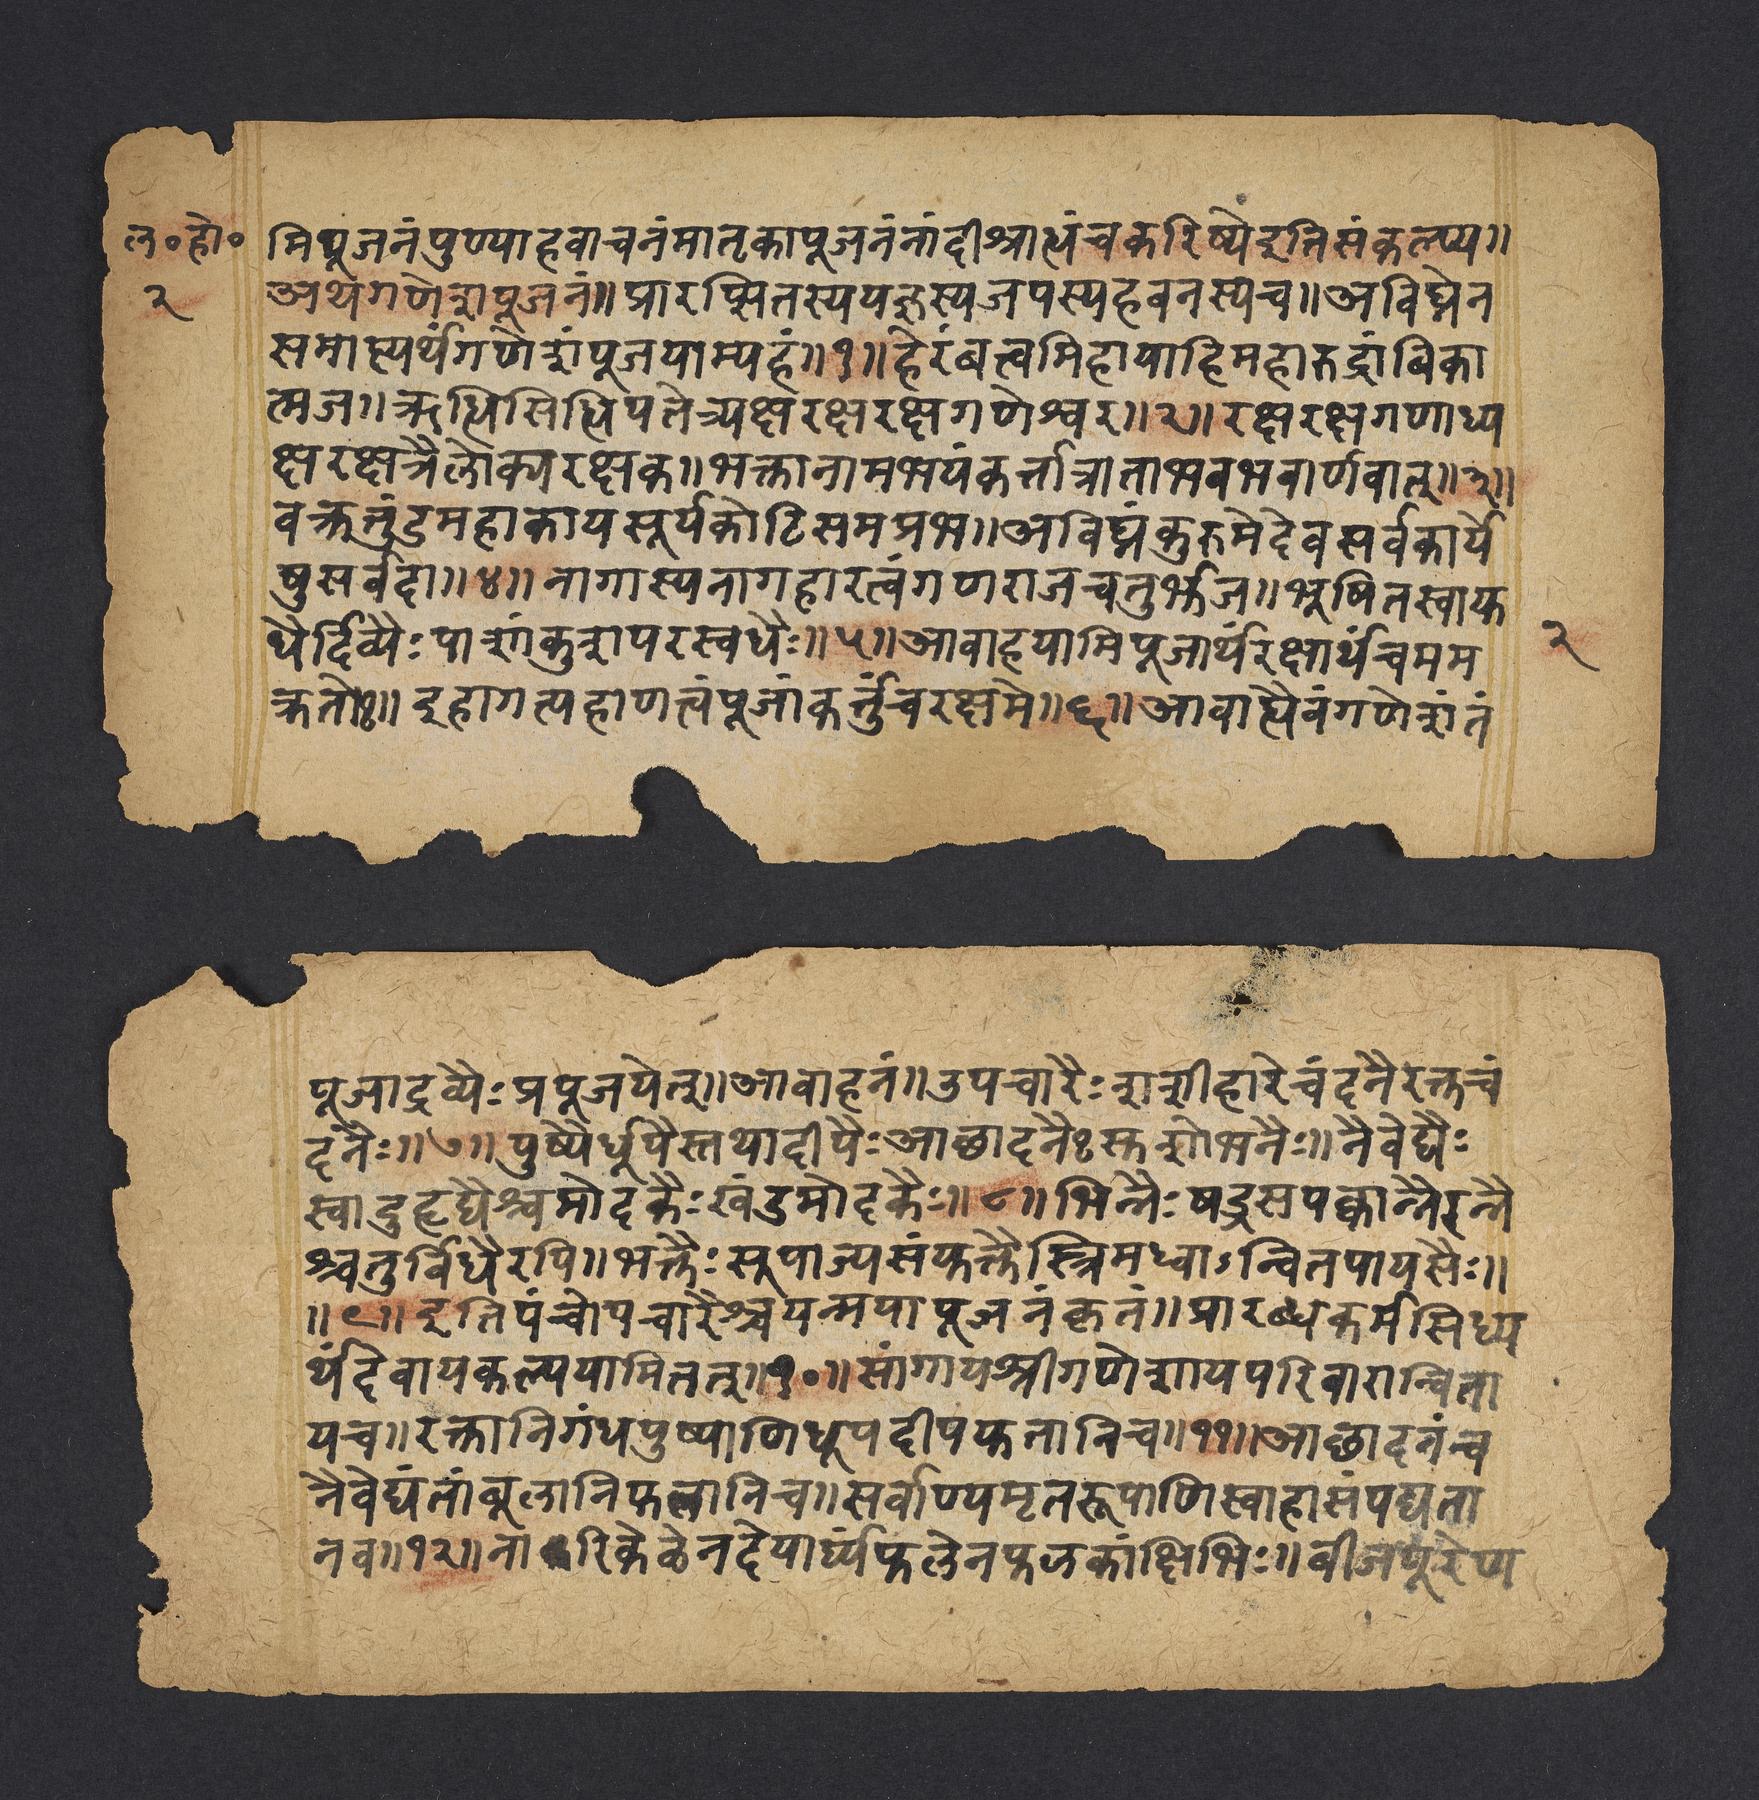 ल०हो०
२
मिपूजनंपुण्याहवाचनंमातृकापूजनंनांदीश्राध्यंचकरिष्येइतिसंकल्प्य॥
अथगणेशपूजनं॥प्रारप्सितस्ययज्ञस्यजपस्यहवनस्यच॥अविघ्नेन
समाप्त्यर्थंगणेशंपूजयाम्यहं॥१॥हेरंबत्वमिहायाहिमहारुद्रांबिका
त्मज॥ऋधिसिधिपतेत्र्यक्षरक्षरक्षगणेश्वर॥२॥रक्षरक्षगणाध्य
क्षरक्षत्रैलोक्यरक्षक॥भक्तानामभयंकर्त्तात्राताभवभवार्णवात्॥३॥
वक्रतुंडमहाकायसूर्यकोटिसमप्रभ॥अविघ्नंकुरुमेदेवसर्वकार्ये
षुसर्वदा॥४॥नागास्यनागहारत्वंगणराजचतुर्भुज॥भूषितस्वायु
धैर्दिव्यैःपाशांकुशपरस्वधैः॥५॥आवाहयामिपूजार्थंरक्षार्थंचमम
क्रतोः॥इहागत्यहाणत्वंपूजांकर्त्तुंचरक्षमे॥६॥आवाह्यैवंगणेशंतं
२
पूजाद्रव्यैःप्रपूजयेत्॥आवाहनं॥उपचारैःशशीहारेचंदनैरक्तचं
दनैः॥७॥पुष्पैर्धूपैस्तथादीपैःआछादनैःस्तशोभनैः॥नैवेद्यैः
स्वादुहृद्यैश्चमोदकैःखंडमोदकैः॥८॥भिन्नैःषड्रसपक्वान्नैरन्नै
श्चतुर्विधैरपि॥भक्तैःसूपाज्यसंयुक्तैस्त्रिमध्वाऽन्वितपायसैः॥
॥९॥इतिपंचोपचारैश्चयन्मयापूजनंकृतं॥प्रारब्धकर्मसिध्य
र्थंदेवायकल्पयामितत्॥१०॥सांगायश्रीगणेशायपरिवारान्विता
यच॥रक्तानिगंधपुष्पाणिधूपदीपयुतानिच॥११॥आछादनंच
नैवेद्यंतांबूलानिफलानिच॥सर्वाण्यमृतरूपाणिस्वाहासंपद्यता
नव॥१२॥नारिकेळेनदेयार्घ्यंफलेनफलकांक्षिभिः॥बीजपूरेण